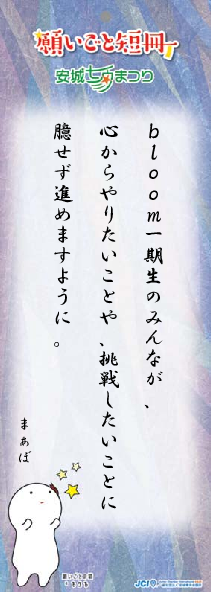 願いごと短冊
安城七夕まつり
bloom一期生のみんなが、
心からやりたいことや、挑戦したいことに
臆せず進めますように。
まあぼ
願いごとの国
JCI